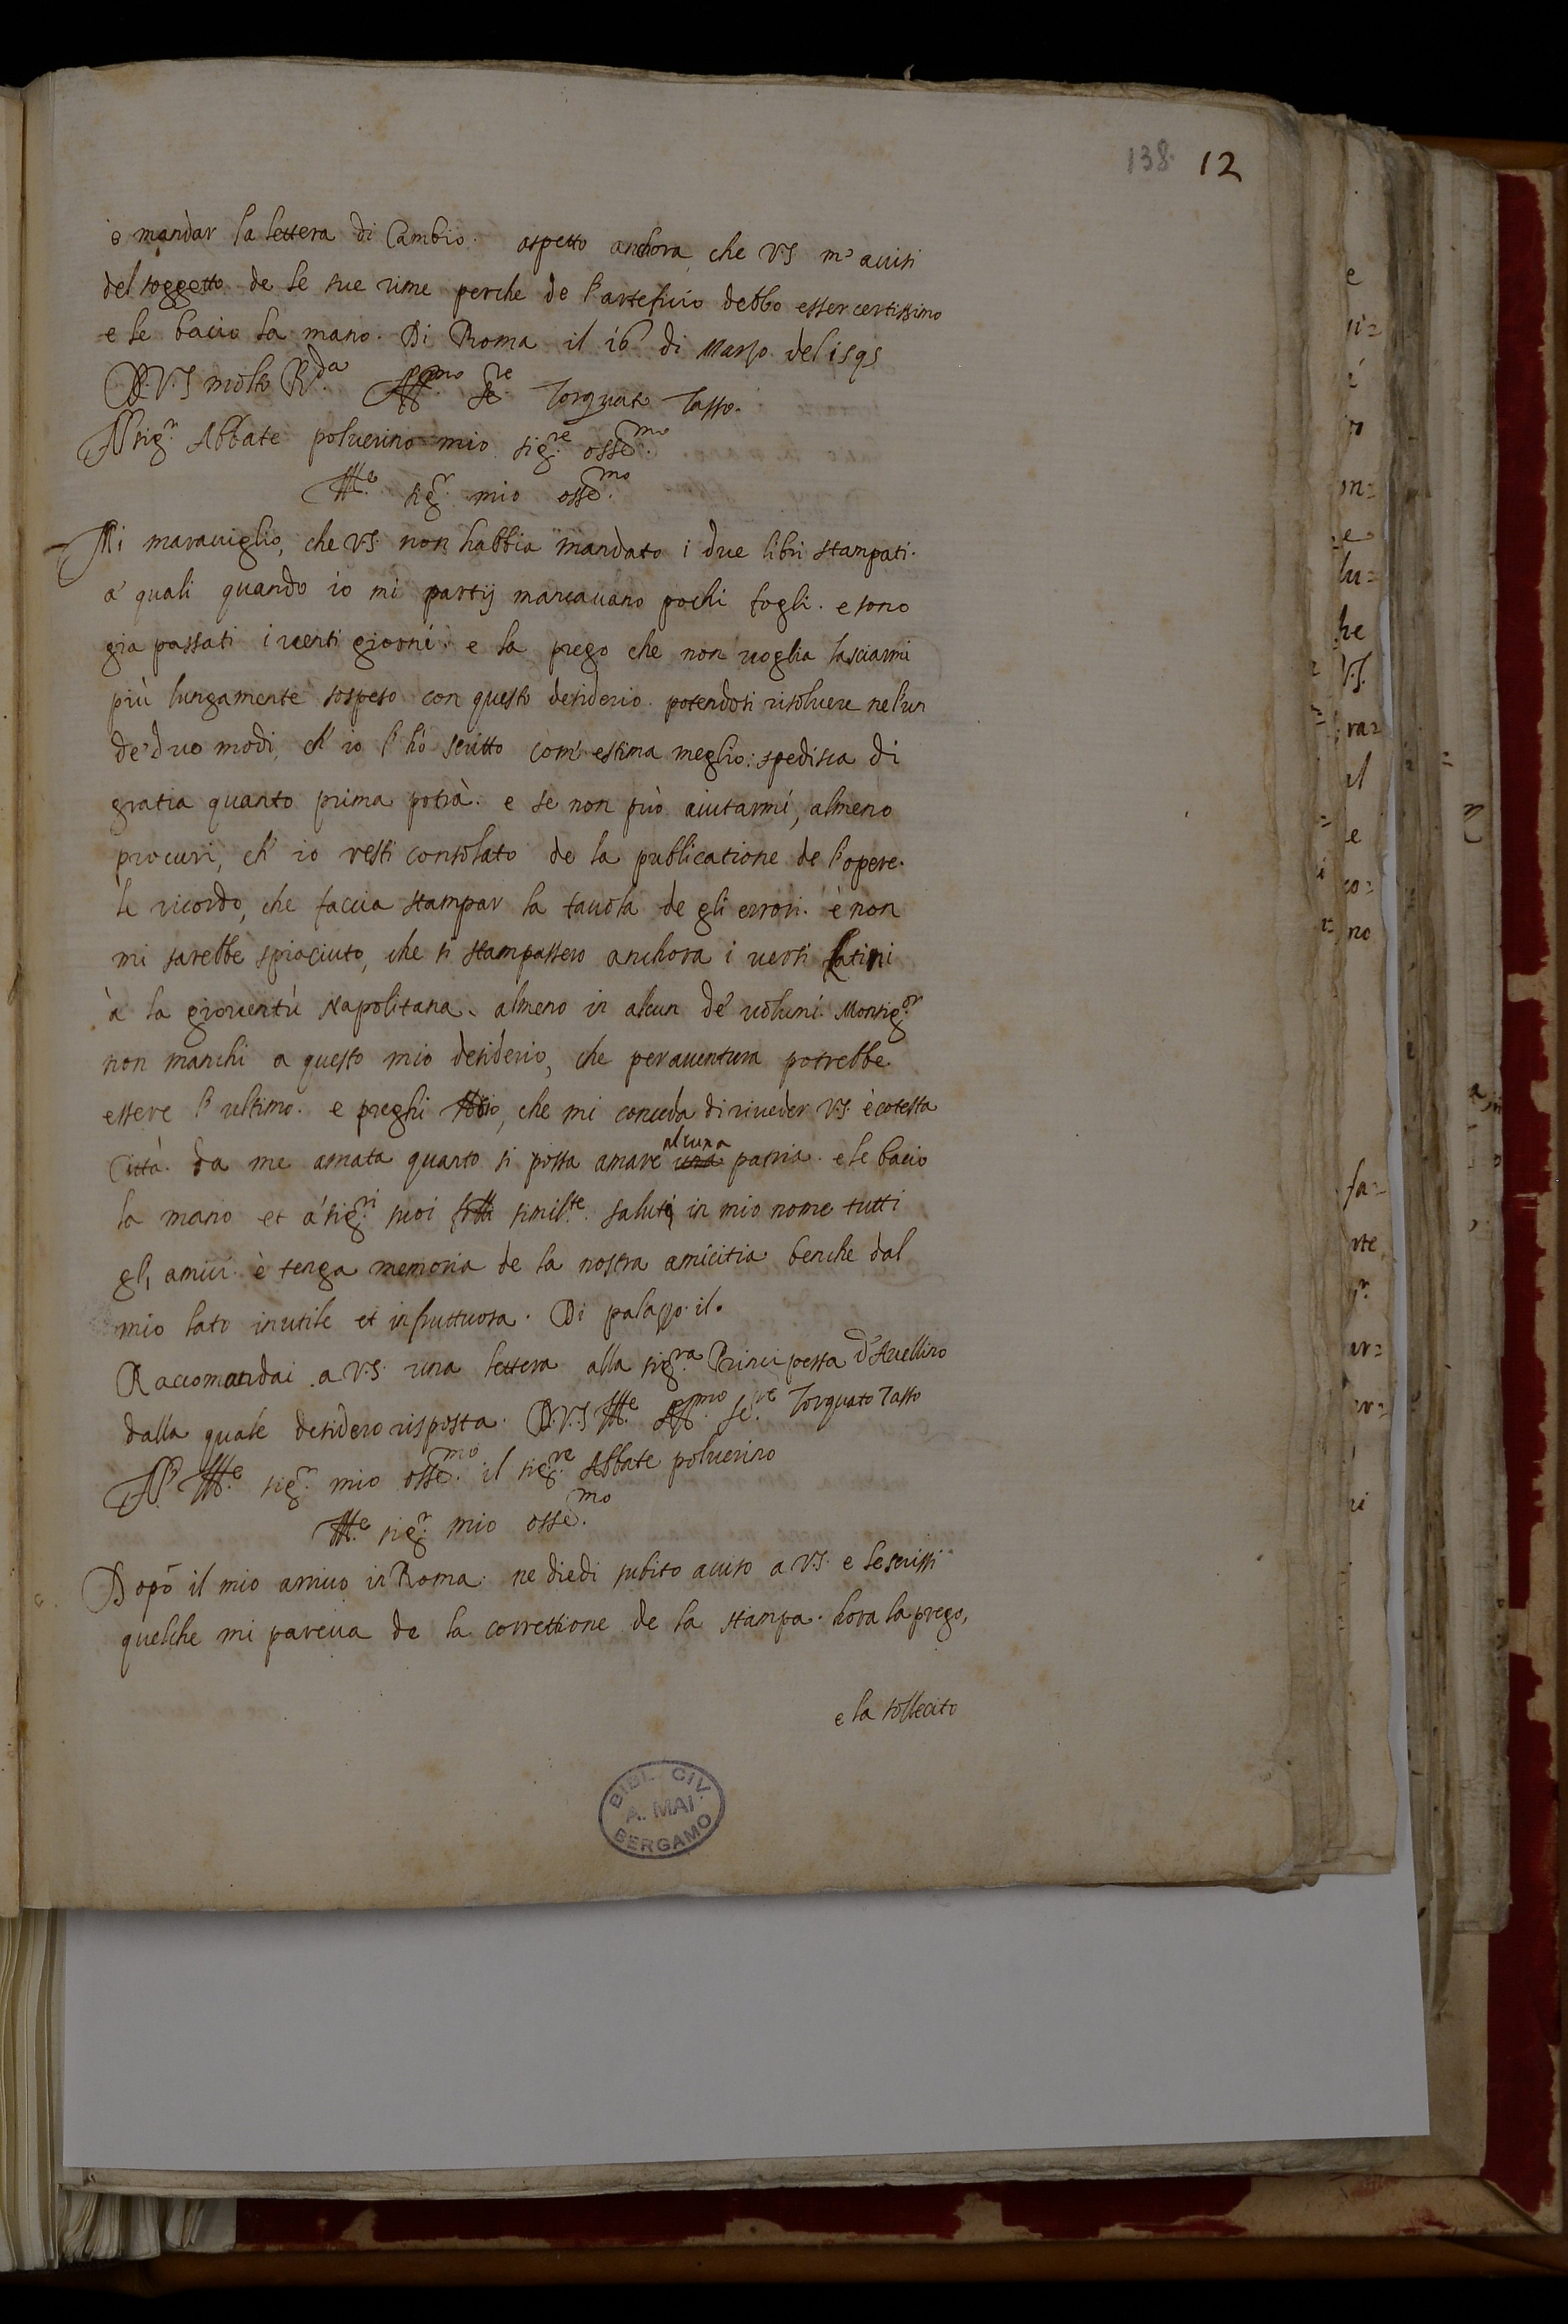 138. 12
ò mandar la lettera di Cambio. aspetto anchora, che V.S. m'auisi
del soggetto de le sue rime perche de l'artefitio debbo esser certissimo
e le bacio la mano. Di Roma il 16 di Marzo del 1595
D.V.S molto R.da Aff.mo Se.re Torquato Tasso.
Al sig.r Abbate poluerino mio sig.re osse.mo
Ill.e sig.r mio osse.mo
Mi marauiglio, che V.S. non habbia mandato i due libri stampati.
a' quali quando io mi partij mancauano pochi fogli. e sono
gia passati i uenti giorni. e la prego che non uoglia lasciarmi
più lungamente sospeso con questo desiderio. potendosi risoluere nel'un
de' duo modi, ch' io l'hó scritto com' estima meglio: spedisca di
gratia quanto prima potrà. e se non può aiutarmi, almeno
procuri, ch' io resti consolato de la publicatione de l'opere.
le ricordo, che faccia stampar la tauola de gli errori. è non
mi sarebbe spiaciuto, che si stampassero anchora i uersi latini
à la giouentù Napolitana. almeno in alcun de' uolumi. Monsig.or
non manchi a questo mio desiderio, che perauentura potrebbe
essere l'ultimo. e preghi Iddio, che mi conceda di riueder V.S. è cotesta
Città. da me amata quanto si possa amare una alcuna patria. e le bacio
la mano et a' sig.ri suoi simil.te saluti in mio nome tutti
gli amici. è tenga memoria de la nostra amicitia benche dal
mio lato inutile et infruttuosa. Di palazzo il.
Raccomandai a V.S. una lettera alla sig.ra Principessa d'Auellino
dalla quale desidero risposta. D.V.S Ill.e Aff.mo Se.re Torquato Tasso
Al Ill.e sig.r mio osse.mo il sig.re Abbate poluerino
Ill.e sig.r mio osse.mo
Dopò il mio arriuo in Roma. ne diedi subito auiso a V.S. e le scrissi
quelche mi pareua de la correttione de la stampa. hora la prego,
e la sollecito
BIBL. CIV.
A. MAI
BERGAMO